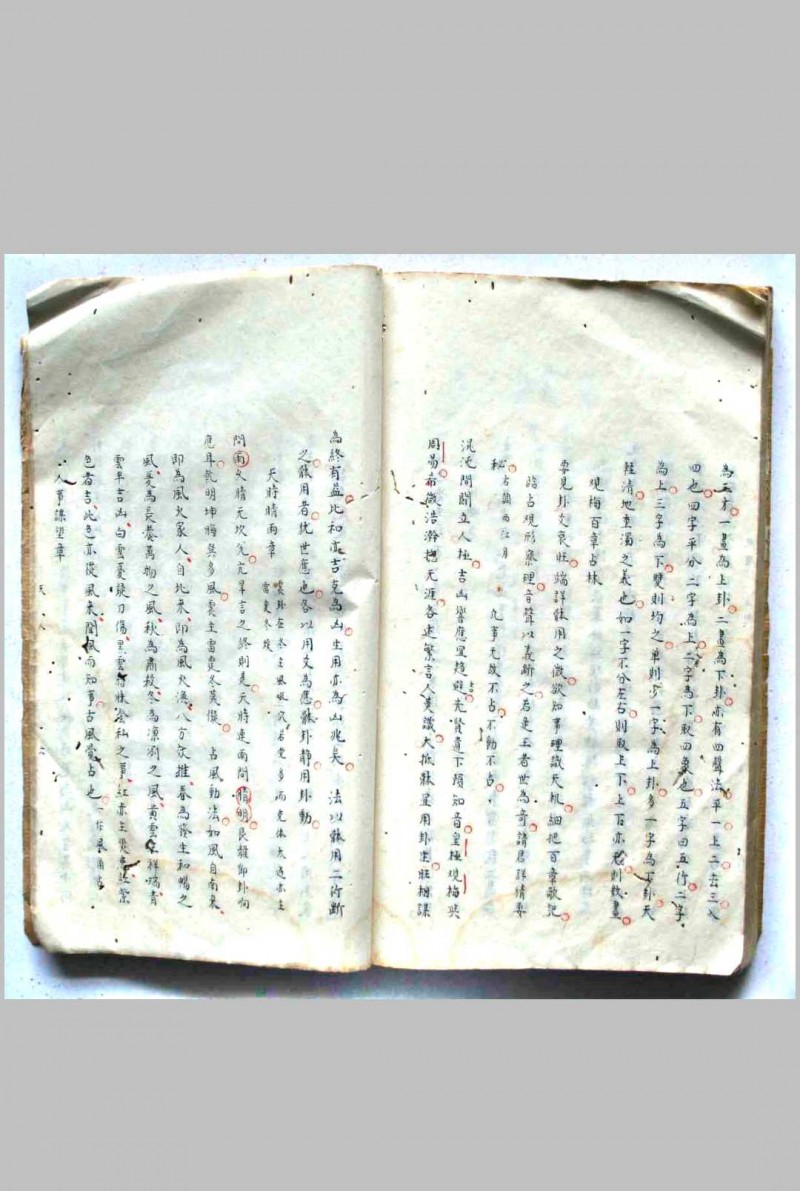 為三才一畫為上卦二畫為下卦亦有四聲法平一上二去三入
四也四字平分二字為上二字為下取四象也五字曰五行二字
為上三字為下雙則均之單則少一字為上卦多一字為下卦天
輕清地重濁之義也如一字不分左右則取上下上右亦然則數畫
觀梅百章占林
要見卦爻衰旺端詳體用之微欲知事理識天机細把百章歌記
臨占現形察理音聲以義斷之君是王者世為奇請君詳情要
秘占調西江月 凡事无故不占不動不占
混沌開闢立人極吉凶響應星趨避先賢遺下預知音皇極觀梅與
周易布微浩瀚抱无涯各述繁言人莫識大抵體宜用卦生旺相謀
為終有益比和亦吉克為凶生用亦為凶兆矣 法以體用二行斷
之體用者犹世應也各以用爻為應體卦靜用卦動
天時晴雨章
問雨久晴无坎兌亢旱言之終則是天時連雨問晴明艮離卦向
應耳乾明坤晦巽多風震主雷霆冬莫擬 占風動法如風自南來
即為風火家人自北來即為風水渙八方依推春為發生和暢之
風夏為長養萬物之風秋為肅殺冬為凜冽之風黃雲祥瑞青
雲半吉凶白雲憂疑刀傷黑雲陰私之事紅亦主
色者吉此色亦從風來聞風而知事古風覺占也
人事謀望章